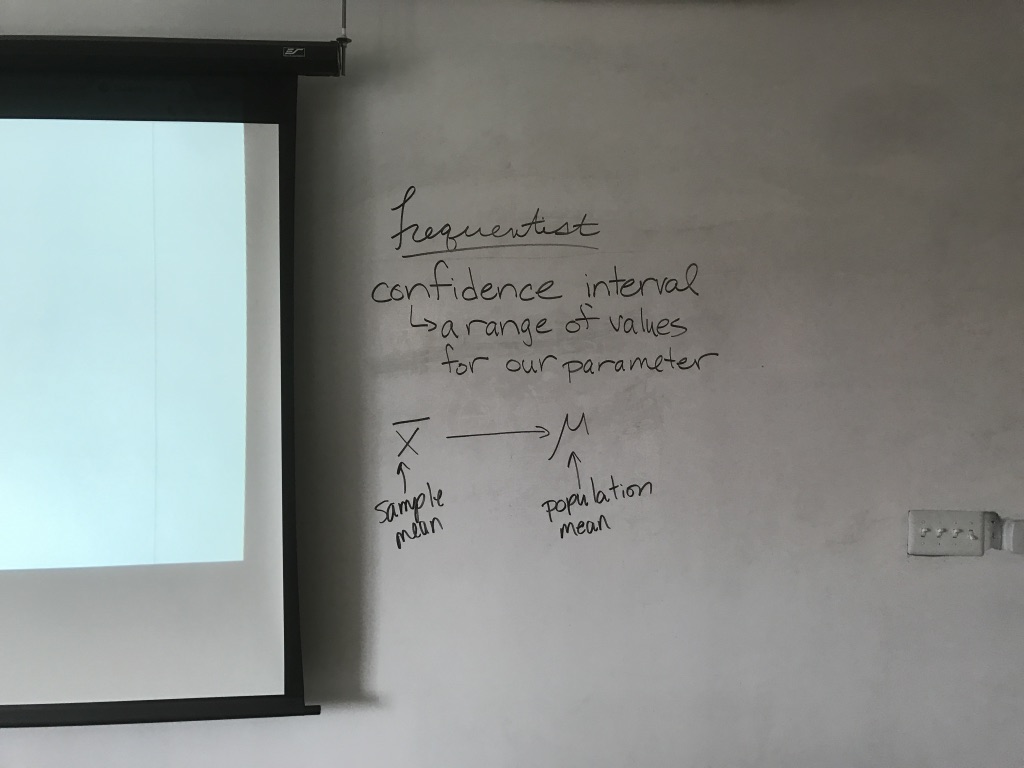 ES
frequentist
confidence interval
↳ a range of values
for our parameter
x̄ → μ
↑ ↑
sample population
mean mean